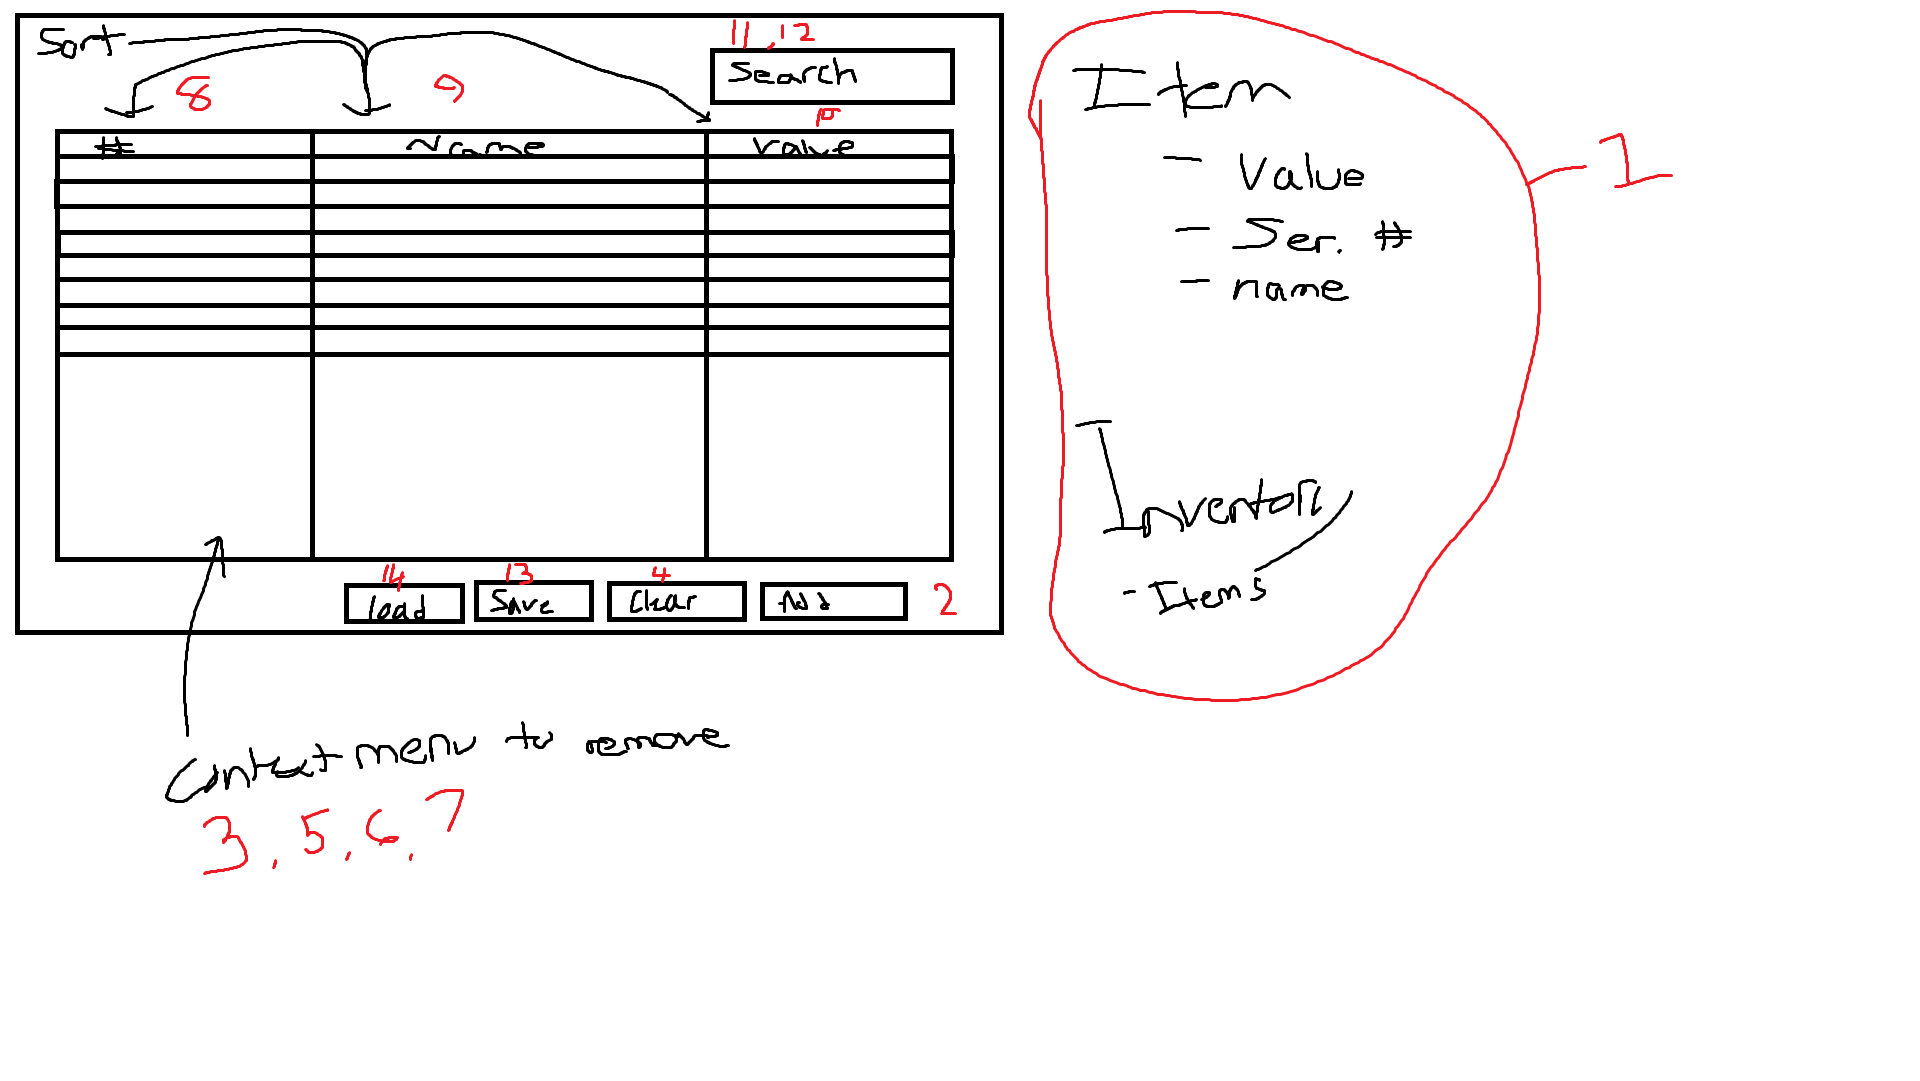 Sort
11, 12
Search
8
9
# Name Value
14
13
4
load
Save
Clear
Add
2
Context menu to remove
3, 5, 6, 7
Item
- Value
- Ser. #
- name
1
Inventory
- Items